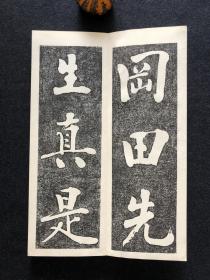 岡田先
生真是